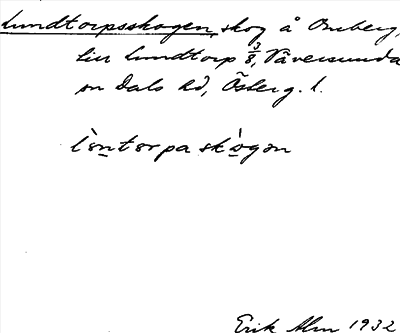 Lundtorpsskogen, skog å Omberg,
till Lundtorp 3/8, Väversunda
sn Dals hd, Österg. l.
l`öntorpask`ogon
Erik Alm 1932